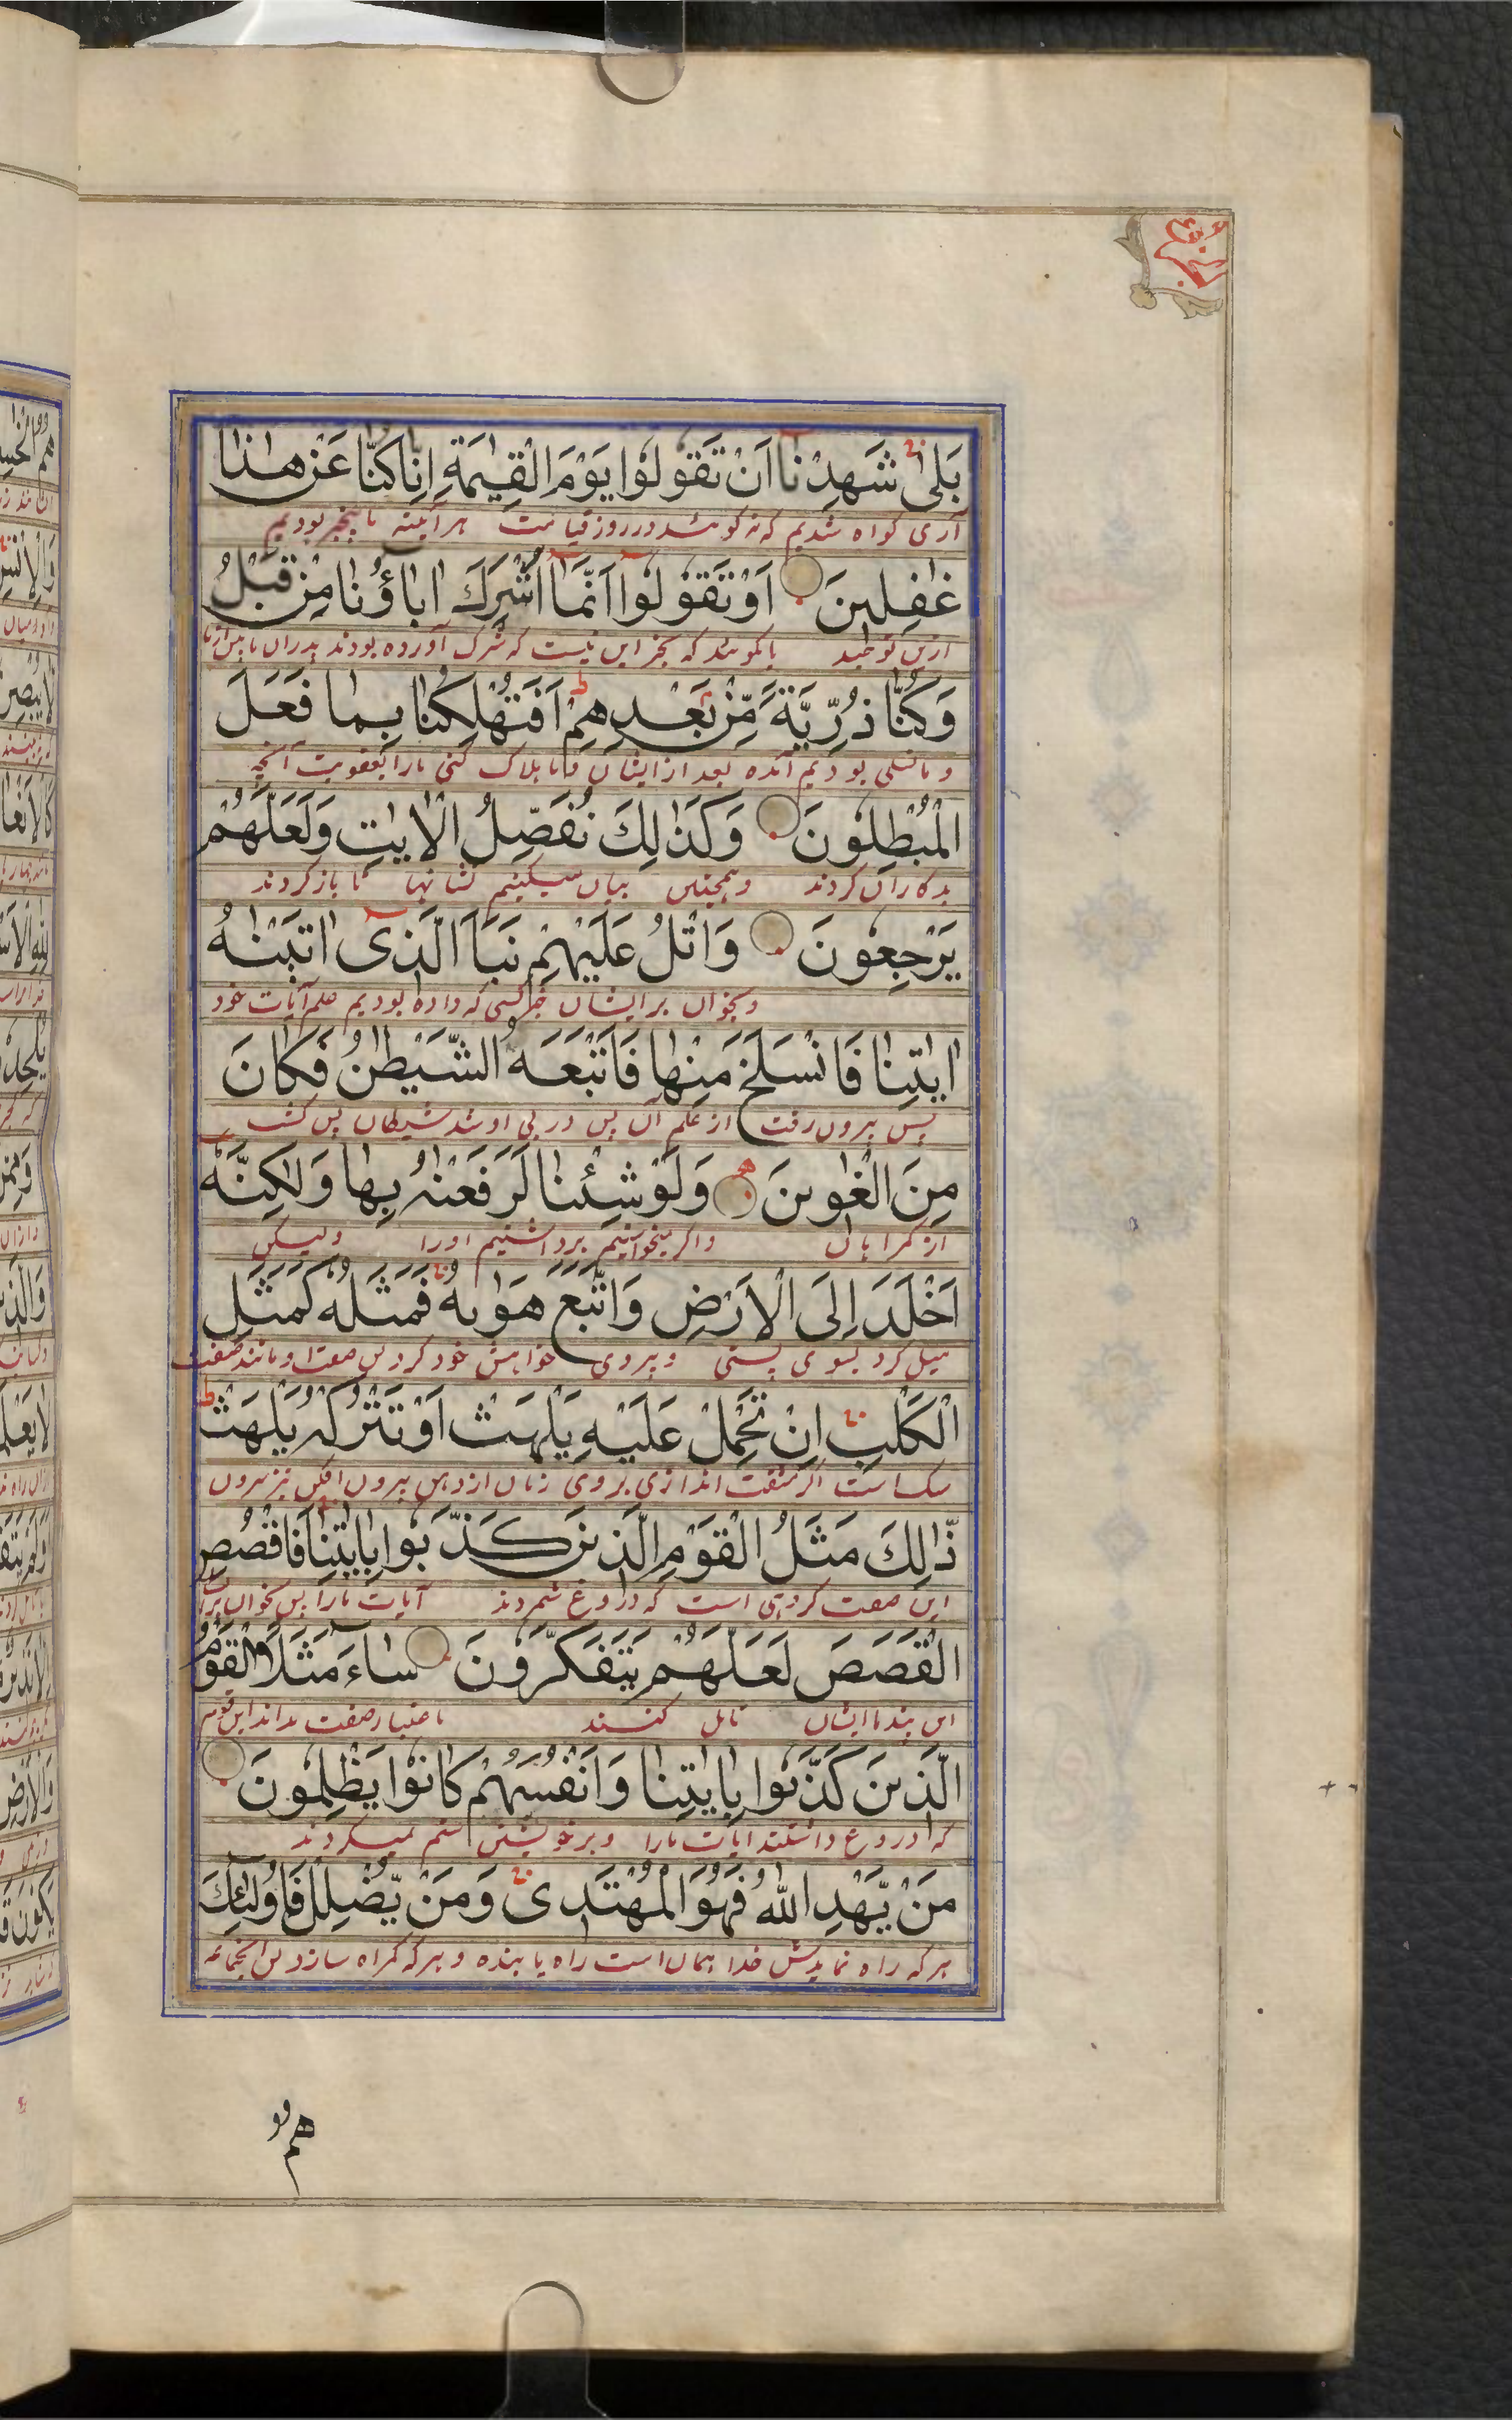 بَلٰى شَهِدْنَا اَنْ تَقُوْلُوْا يَوْمَ الْقِيٰمَةِ اِنَّا كُنَّا عَنْ هٰذَا
آری گواه شدیم که نه گویند در روز قیامت هر آئینه ما بیخبر بودیم
غٰفِلِينَ اَوْ تَقُوْلُوْا اِنَّمَا اَشْرَكَ اٰبَاؤُنَا مِنْ قَبْلُ
یا گویند که بجز این نیست که شرک آورده بودند پدران ما پیش از ما
وَكُنَّا ذُرِّيَّةً مِّنْ بَعْدِهِمْ اَفَتُهْلِكُنَا بِمَا فَعَلَ
و ما نسلی بودیم آمده بعد از ایشان آیا هلاک کنی ما را بعقوبت آنچه
الْمُبْطِلُوْنَ وَكَذٰلِكَ نُفَصِّلُ الْاٰيٰتِ وَلَعَلَّهُمْ
بدکاران کردند و همچنین بیان میکنیم نشانها تا باز گردند
يَرْجِعُوْنَ وَاتْلُ عَلَيْهِمْ نَبَاَ الَّذِى اٰتَيْنٰهُ
و بخوان بر ایشان خبر کسی که داده بودیم علم آیات خود
اٰيٰتِنَا فَانْسَلَخَ مِنْهَا فَاَتْبَعَهُ الشَّيْطٰنُ فَكَانَ
پس بیرون رفت از علم آن پس در پی او شد شیطان پس گشت
مِنَ الْغٰوِينَ وَلَوْ شِئْنَا لَرَفَعْنٰهُ بِهَا وَلٰكِنَّهُ
از گمراهان و اگر میخواستیم برداشتیم او را ولیکن
اَخْلَدَ اِلَى الْاَرْضِ وَاتَّبَعَ هَوٰىهُ فَمَثَلُهُ كَمَثَلِ
میل کرد بسوی پستی و پیروی خواهش خود کرد پس صفت او مانند صفت
الْكَلْبِ اِنْ تَحْمِلْ عَلَيْهِ يَلْهَثْ اَوْ تَتْرُكْهُ يَلْهَثْ
سگ است اگر مشقت اندازی بر وی زبان از دهن بیرون افکن نیز بیرون
ذٰلِكَ مَثَلُ الْقَوْمِ الَّذِينَ كَذَّبُوْا بِاٰيٰتِنَا فَاقْصُصِ
این صفت گروهی است که دروغ شمردند آیات ما را پس بخوان بر ایشان
الْقَصَصَ لَعَلَّهُمْ يَتَفَكَّرُوْنَ سَاءَ مَثَلًا الْقَوْمُ
این پند تا ایشان تامل کنند باعتبار صفت بداند این قوم
الَّذِينَ كَذَّبُوْا بِاٰيٰتِنَا وَاَنْفُسَهُمْ كَانُوْا يَظْلِمُوْنَ
که دروغ داشتند آیات ما را و بر خویشتن ستم میکردند
مَنْ يَّهْدِ اللّٰهُ فَهُوَ الْمُهْتَدِى وَمَنْ يُّضْلِلْ فَاُولٰئِكَ
هر که راه نمایدش خدا همان است راه یابنده و هر که گمراه سازد پس آنجماعه
هم